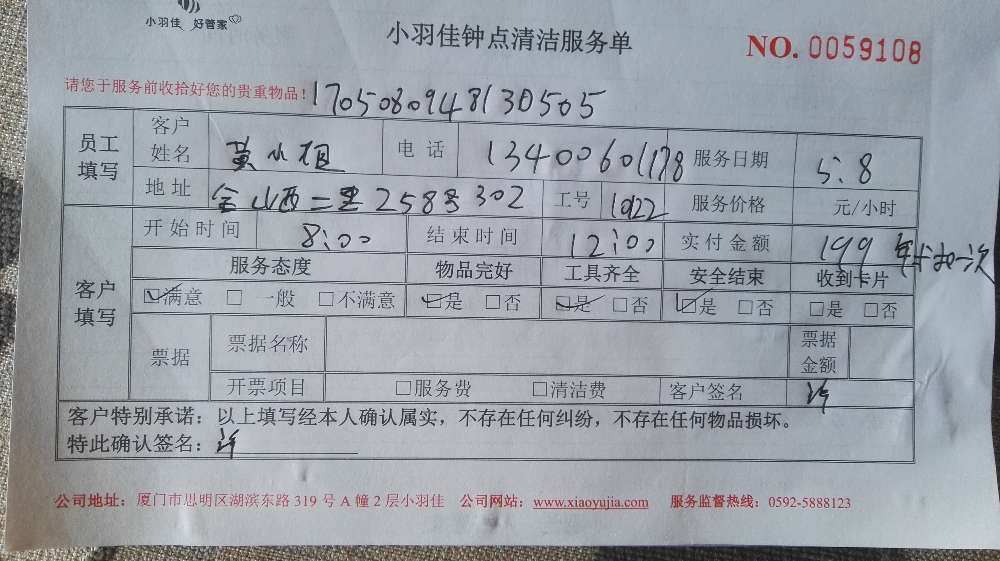 小羽佳 好管家
小羽佳钟点清洁服务单
NO. 0059108
请您于服务前收拾好您的贵重物品！1705080948130505
员工填写 客户姓名 黄小姐 电话 13400601178 服务日期 5:8
地址 金山西二里258号302 工号 1022 服务价格 元/小时
客户填写 开始时间 8:00 结束时间 12:00 实付金额 199
服务态度 物品完好 工具齐全 安全结束 收到卡片
☑满意 □一般 □不满意 ☑是 □否 ☑是 □否 ☑是 □否 □是 □否
票据 票据名称 票据金额
开票项目 □服务费 □清洁费 客户签名 许
客户特别承诺：以上填写经本人确认属实，不存在任何纠纷，不存在任何物品损坏。
特此确认签名：许
公司地址：厦门市思明区湖滨东路 319 号 A 幢 2 层小羽佳 公司网站：www.xiaoyujia.com 服务监督热线：0592-5888123